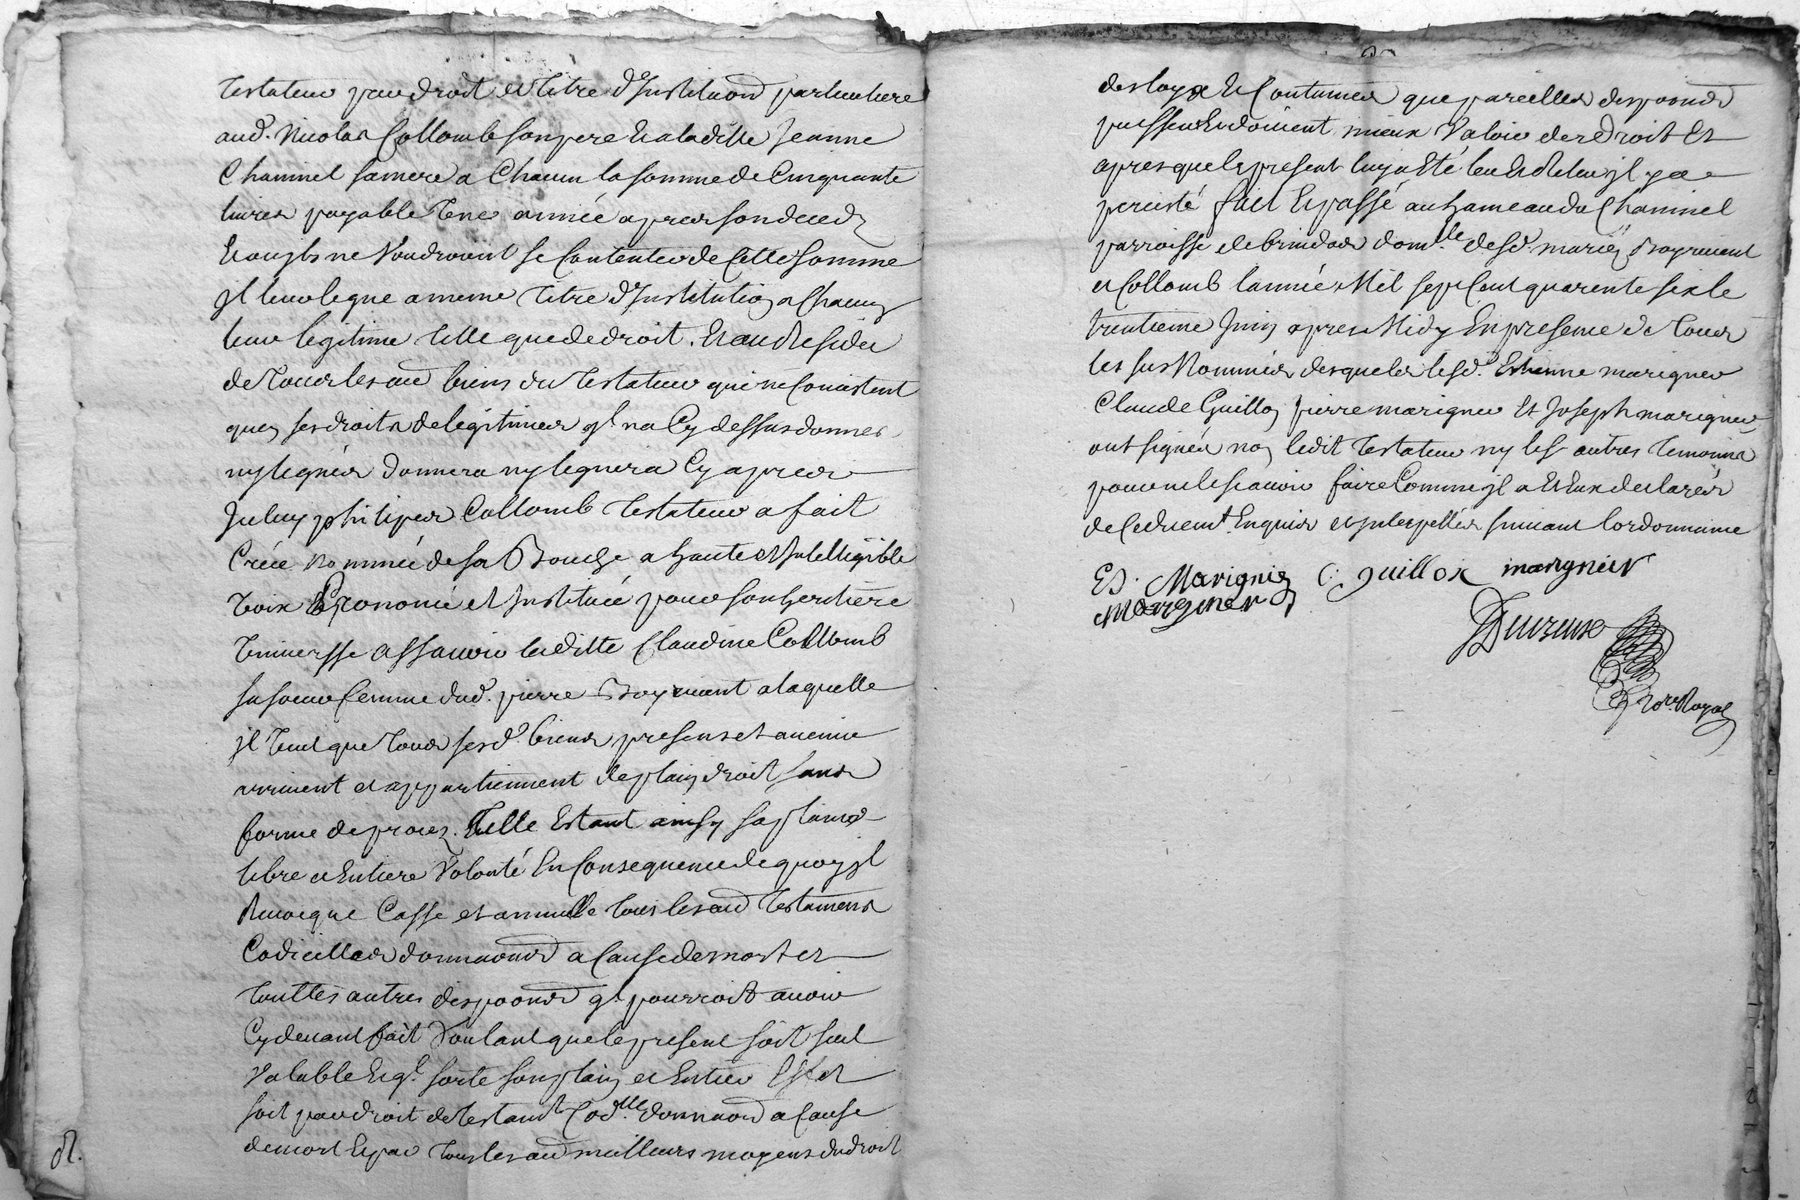 testateur par droit et titre d'Instituaon particuliere
aud. Nicolas Collomb son pere et a laditte Jeanne
Chaminel sa mere a Chacun la somme de Cinquante
livres payable une année apres son deced
et ou jls ne Voudroient se Contenter de Cette somme
jl leur legue a meme titre d'Institution a Chacun
leur legitime telle que de droit. Et au Residu
de tous les au biens du testateur qui ne Consistent
quen ses droits de legitimes ql na Cy dessus donnes
ny legués donnera ny leguera Cy apres
Jceluy philiper Collomb testateur a fait
Créé Nommée de sa Bouche a haute et Intelligible
voix et Institüée pour son heritiere
Vniverselle assavoir laditte Claudine Collomb
sa soeur femme dud. pierre Boyrivent a laquelle
jl veut que tous sesd. biens presens et avenir
viennent et appartiennent de plain droit sans
forme de procez. telle Estant ainsy sa plaine
libre et Entiere Volonté En Consequence de quoy jl
Revoque Casse et annulle tous les au testamens
Codicilles donnaons a Cause de mort et
touttes autres dispoons ql pourroit avoir
Cy devant fait Voulant que le present soit seul
Valable et ql. sorte son plain et Entier Effet
soit par droit de testamt. Codlle. donnaon a Cause
de mort et par tous les au meilleurs moyens du droit
des loyx et Coutumes que pareilles dispoons
puissent et doivent mieux Valoir de droit Et
apres que le present luy a Eté leu et Releu jl y a
persisté fait et passé au hameau du Chaminel
parroisse de brindas domlle. desd. mariéz Boyrivent
et Collomb l'année Mil sept Cent quarente six le
trentieme Juin apres Midy En presence de tous
les sus Nommés desquels led. Estienne marignier
Claude Guillon pierre marignier Et Joseph marignier
ont signés non ledit testateur ny les autres temoins
pour ne le scavoir faire Comme jl a Et Eux declarés
de Ce duemt. Enquis et jnterpellés suivant lordonnance
Es. Marignier C. guillon marignier
Marignier
Devreux
Nore. Royal